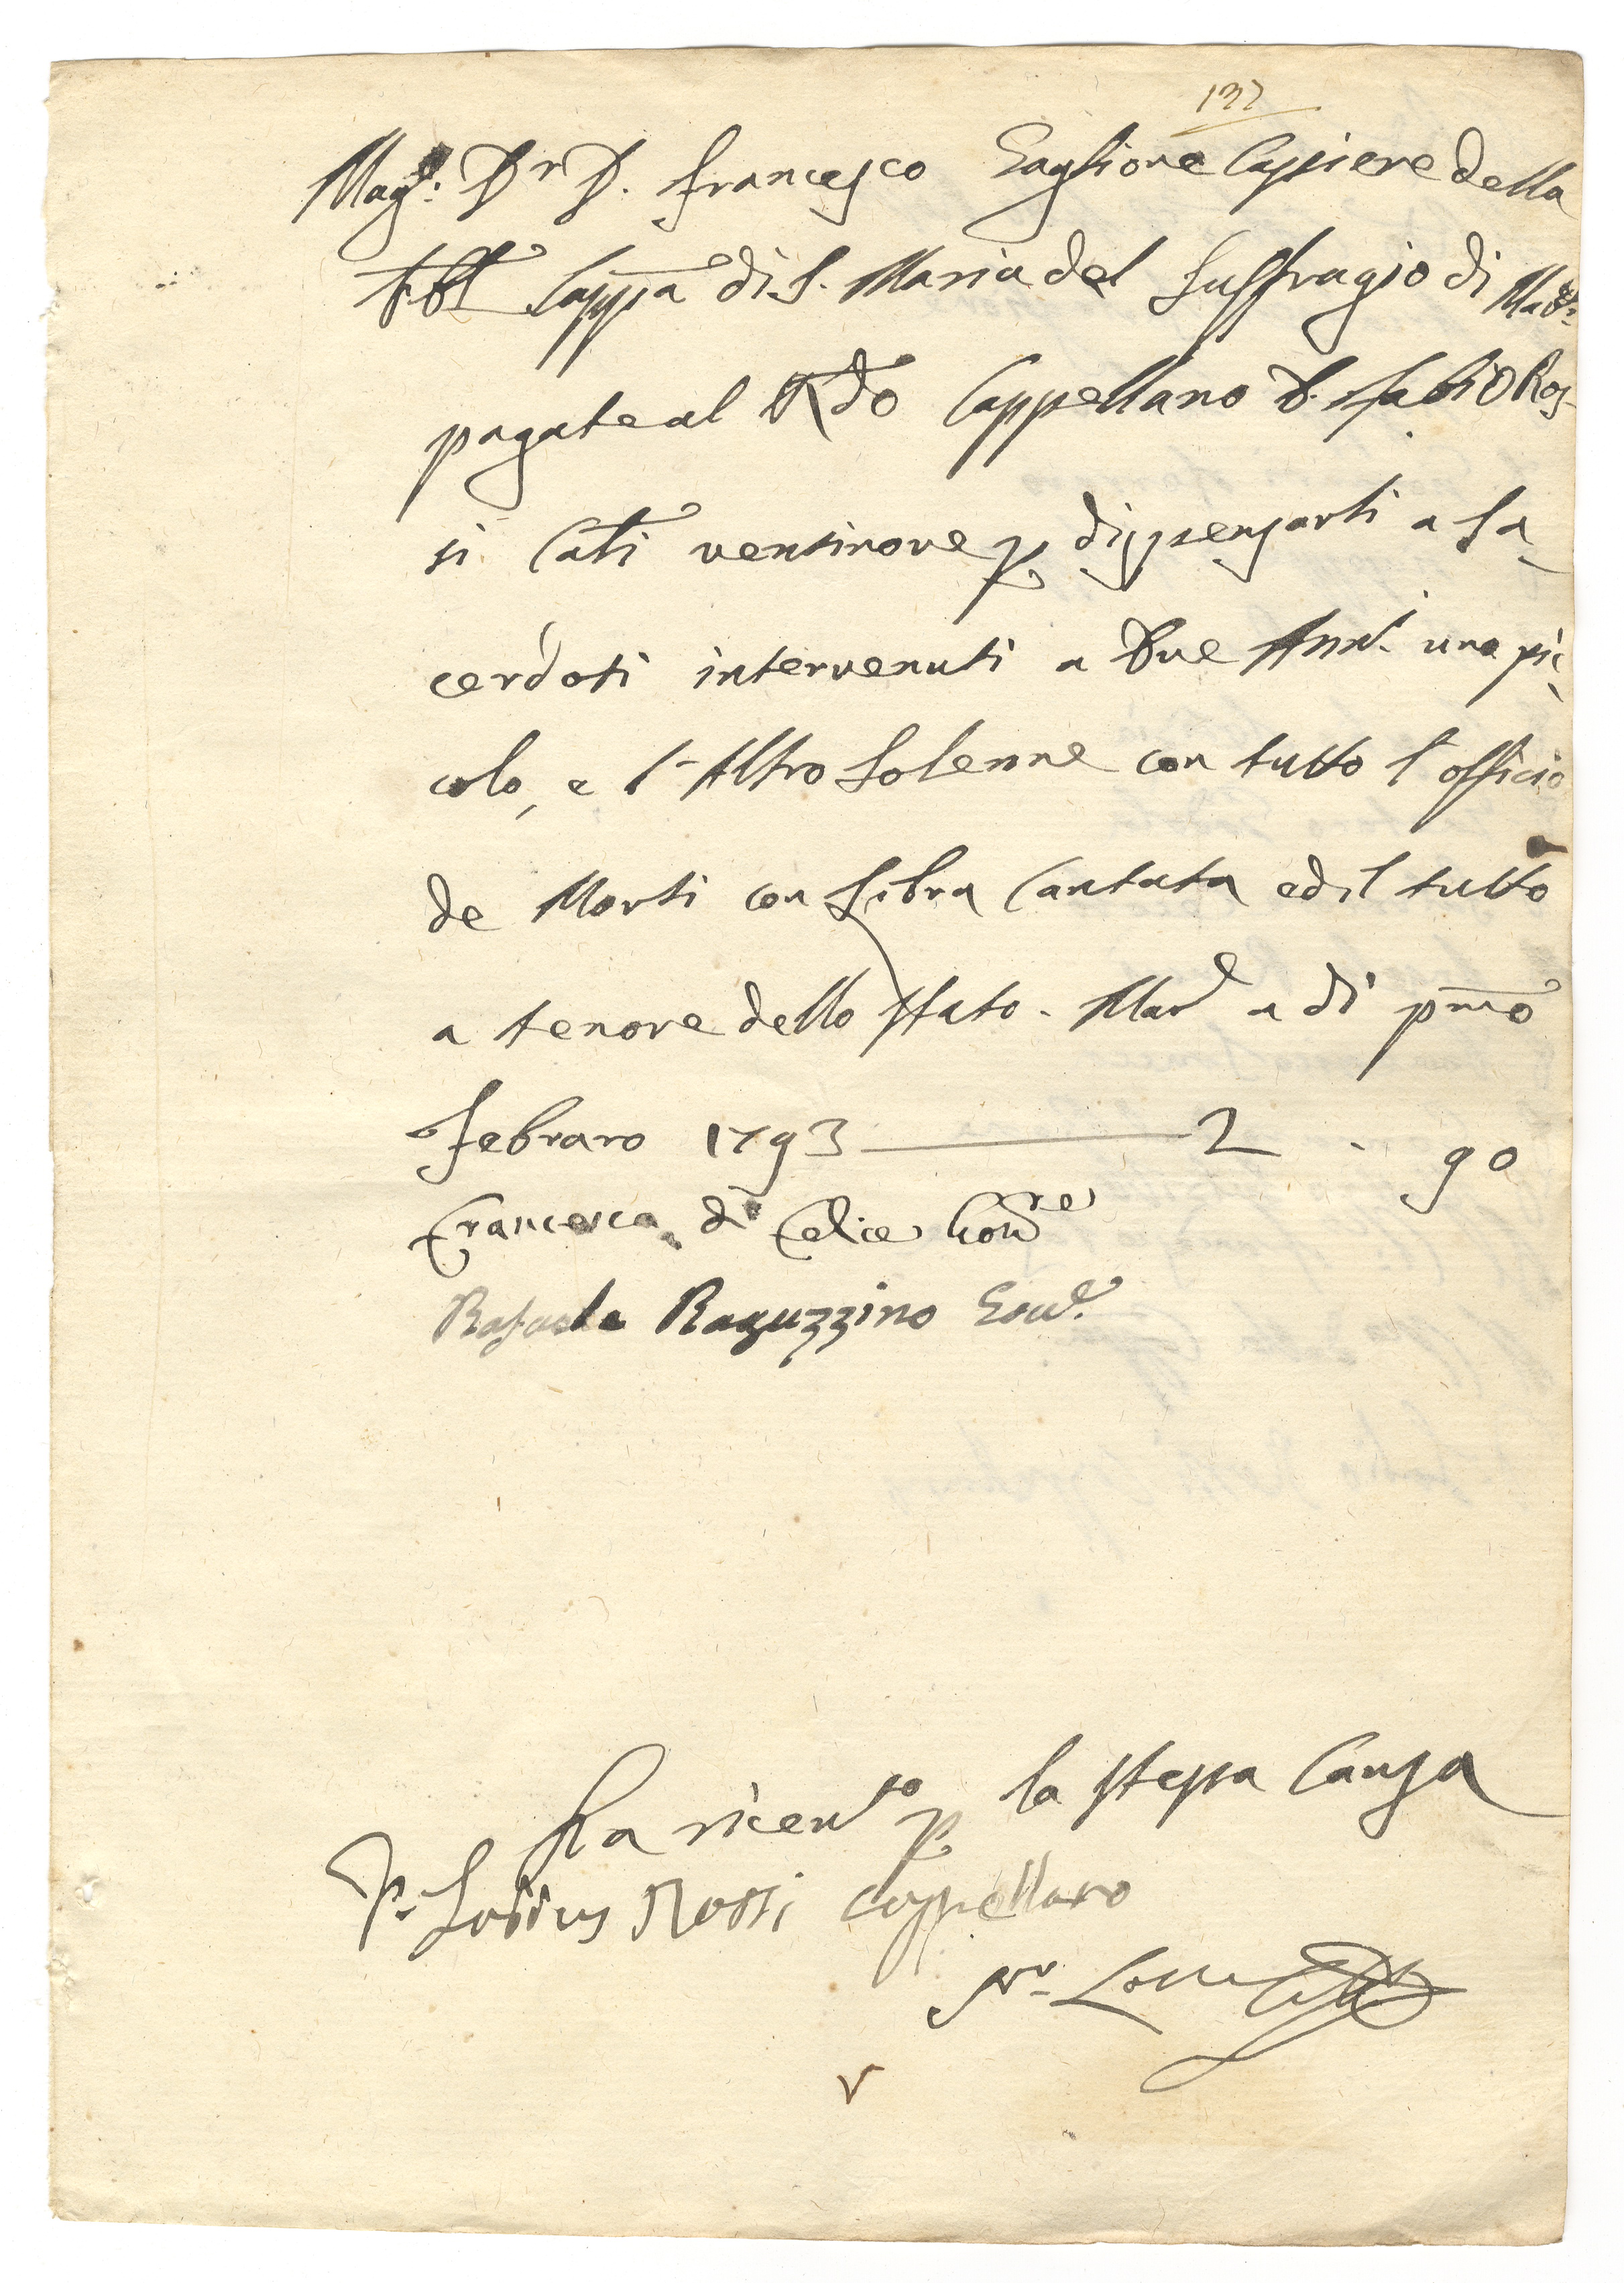 137
Mag.º Dr D. Francesco Gaglione Cassiere della
Cappa di S. Maria del Suffragio di Madd.
pagate al Rdo Cappellano D. Fabio Ros-
si Cati ventinove p. dispensarli a Sa-
cerdoti intervenuti a Due Annl. uno pic-
colo, e l'Altro Solenne con tutto l'officio
de Morti con Libra Cantata ed il tutto
a tenore dello Stato. Madl a di pmo
Febraro 1793 — 2 . 90
Francesca di Felice Gore
Rafaele Raguzzino
Ha ricevto p. la stessa Causa
D. Fabius Rossi Cappellano